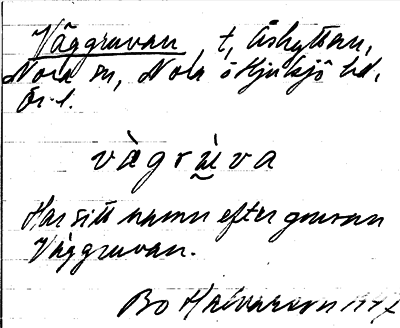 Väggruvan t, Åshyttan,
Nora sn, Nora o Hjulsjö hd,
Ör. l.
vàgrùva
Har sitt namn efter gruvan
Väggruvan.
Bo Halvarson